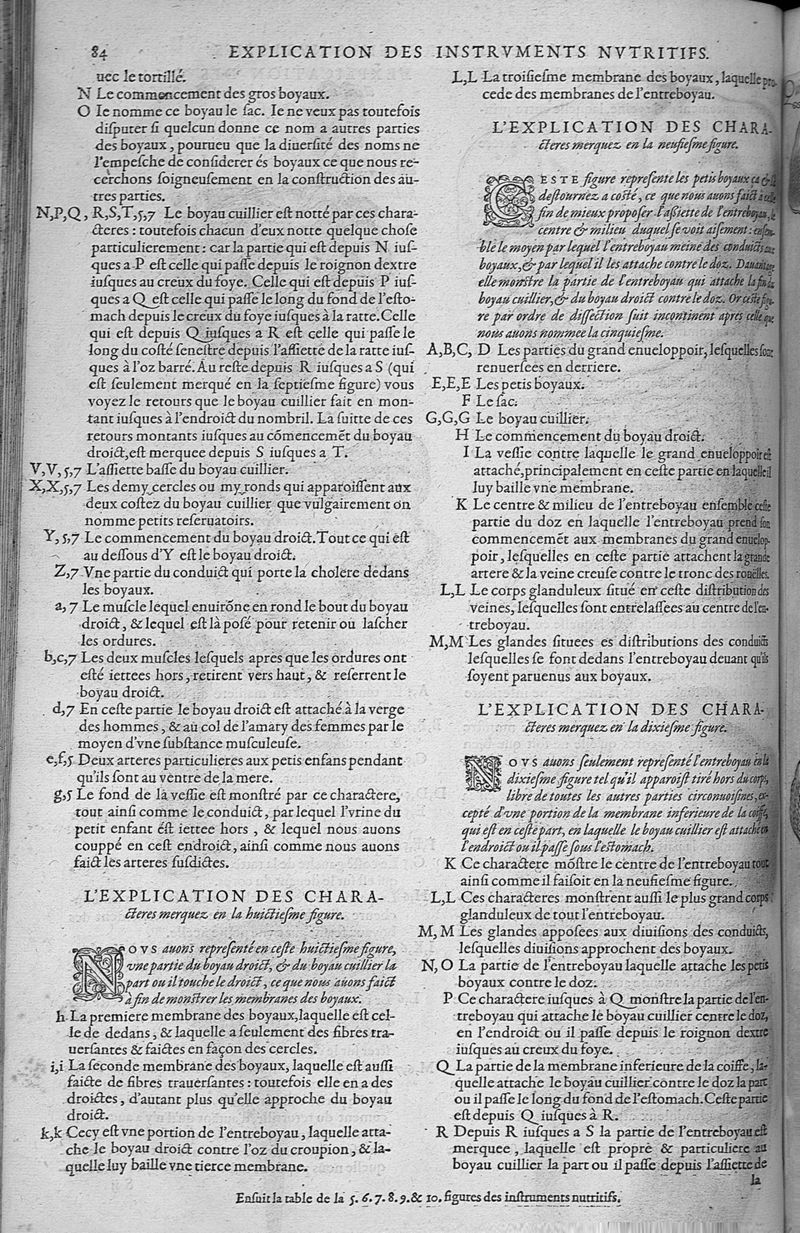 84 EXPLICATION DES INSTRVMENTS NVTRITIFS.
uec le tortillé.
N Le commencement des gros boyaux.
O Ie nomme ce boyau le ſac. Ie ne veux pas toutefois
diſputer ſi quelcun donne ce nom a autres parties
des boyaux, pourueu que la diuerſité des noms ne
l'empeſche de conſiderer és boyaux ce que nous re-
cerchons ſoigneuſement en la conſtruction des au-
tres parties.
N,P,Q, R,S,T,5,7 Le boyau cuillier eſt notté par ces chara-
cteres : toutefois chacun d'eux notte quelque choſe
particulierement : car la partie qui eſt depuis N iuſ-
ques a P eſt celle qui paſſe depuis le roignon dextre
iuſques au creux du foye. Celle qui eſt depuis P iuſ-
ques a Q eſt celle qui paſſe le long du fond de l'eſto-
mach depuis le creux du foye iuſques à la ratte. Celle
qui eſt depuis Q iuſques a R eſt celle qui paſſe le
long du coſté ſeneſtre depuis l'aſſiette de la ratte iuſ-
ques à l'oz barré. Au reſte depuis R iuſques a S (qui
eſt ſeulement merqué en la ſeptieſme figure) vous
voyez le retours que le boyau cuillier fait en mon-
tant iuſques à l'endroict du nombril. La ſuitte de ces
retours montants iuſques au cõmencemẽt du boyau
droict, eſt merquee depuis S iuſques a T.
V,V,5,7 L'aſſiette baſſe du boyau cuillier.
X,X,5,7 Les demy cercles ou my ronds qui apparoiſſent aux
deux coſtez du boyau cuillier que vulgairement on
nomme petits reſeruatoirs.
Y,5,7 Le commencement du boyau droict. Tout ce qui eſt
au deſſous d'Y eſt le boyau droict.
Z,7 Vne partie du conduict qui porte la cholere dedans
les boyaux.
a,7 Le muſcle lequel enuirõne en rond le bout du boyau
droict, & lequel eſt là poſé pour retenir ou laſcher
les ordures.
b,c,7 Les deux muſcles leſquels apres que les ordures ont
eſté iettees hors, retirent vers haut, & reſerrent le
boyau droict.
d,7 En ceſte partie le boyau droict eſt attaché à la verge
des hommes, & au col de l'amary des femmes par le
moyen d'vne ſubſtance muſculeuſe.
e,f,5 Deux arteres particulieres aux petis enfans pendant
qu'ils ſont au ventre de la mere.
g,5 Le fond de la veſſie eſt monſtré par ce charactere,
tout ainſi comme le conduict, par lequel l'vrine du
petit enfant eſt iettee hors, & lequel nous auons
couppé en ceſt endroict, ainſi comme nous auons
faict les arteres ſuſdictes.
L'EXPLICATION DES CHARA-
cteres merquez en la huictieſme figure.
NOVS auons repreſenté en ceſte huictieſme figure,
vne partie du boyau droict, & du boyau cuillier la
part ou il touche le droict, ce que nous auons faict
à fin de monſtrer les membranes des boyaux.
h La premiere membrane des boyaux, laquelle eſt cel-
le de dedans, & laquelle a ſeulement des fibres tra-
uerſantes & faictes en façon des cercles.
i,i La ſeconde membrane des boyaux, laquelle eſt auſſi
faicte de fibres trauerſantes : toutefois elle en a des
droictes, d'autant plus qu'elle approche du boyau
droict.
k,k Cecy eſt vne portion de l'entreboyau, laquelle atta-
che le boyau droict contre l'oz du croupion, & la-
quelle luy baille vne tierce membrane.
L,L La troiſieſme membrane des boyaux, laquelle pro-
cede des membranes de l'entreboyau.
L'EXPLICATION DES CHARA-
cteres merquez en la neuſieſme figure.
CESTE figure repreſente les petis boyaux ca & là
deſtournez a coſté, ce que nous auons faict à celle
fin de mieux propoſer l'aſſiette de l'entreboyau, le
centre & milieu duquel ſe voit aiſement : enſem-
ble le moyen par lequel l'entreboyau meine des conduicts aux
boyaux, & par lequel il les attache contre le doz. Dauantage
elle monſtre la partie de l'entreboyau qui attache la fin du
boyau cuillier, & du boyau droict contre le doz. Or ceſte figu-
re par ordre de diſſection ſuit incontinent apres celle que
nous auons nommee la cinquieſme.
A,B,C, D Les parties du grand enueloppoir, leſquelles ſont
renuerſees en derriere.
E,E,E Les petis boyaux.
F Le ſac.
G,G,G Le boyau cuillier.
H Le commencement du boyau droict.
I La veſſie contre laquelle le grand enueloppoir eſt
attaché, principalement en ceſte partie en laquelle il
luy baille vne membrane.
K Le centre & milieu de l'entreboyau enſemble ceſte
partie du doz en laquelle l'entreboyau prend ſon
commencemẽt aux membranes du grand enuelop-
poir, leſquelles en ceſte partie attachent la grande
artere & la veine creuſe contre le tronc des rouëlles.
L,L Le corps glanduleux ſitué en ceſte diſtribution des
veines, leſquelles ſont entrelaſſees au centre de l'en-
treboyau.
M,M Les glandes ſituees es diſtributions des conduicts
leſquelles ſe font dedans l'entreboyau deuant qu'ils
ſoyent paruenus aux boyaux.
L'EXPLICATION DES CHARA-
cteres merquez en la dixieſme figure.
NOVS auons ſeulement repreſenté l'entreboyau en la
dixieſme figure tel qu'il apparoiſt tiré hors du corps,
libre de toutes les autres parties circonuoiſines, ex-
cepté d'vne portion de la membrane inferieure de la coiffe,
qui eſt en ceſte part, en laquelle le boyau cuillier eſt attaché en
l'endroict ou il paſſe ſous l'eſtomach.
K Ce charactere mõſtre le centre de l'entreboyau tout
ainſi comme il faiſoit en la neuſieſme figure.
L,L Ces characteres monſtrent auſſi le plus grand corps
glanduleux de tout l'entreboyau.
M, M Les glandes appoſees aux diuiſions des conduicts,
leſquelles diuiſions approchent des boyaux.
N, O La partie de l'entreboyau laquelle attache les petis
boyaux contre le doz.
P Ce charactere iuſques à Q monſtre la partie de l'en-
treboyau qui attache le boyau cuillier contre le doz,
en l'endroict ou il paſſe depuis le roignon dextre
iuſques au creux du foye.
Q La partie de la membrane inferieure de la coiffe, la-
quelle attache le boyau cuillier contre le doz la part
ou il paſſe le long du fond de l'eſtomach. Ceſte partie
eſt depuis Q iuſques à R.
R Depuis R iuſques a S la partie de l'entreboyau eſt
merquee, laquelle eſt propre & particuliere au
boyau cuillier la part ou il paſſe depuis l'aſſiette de
la
Enſuit la table de la 5. 6. 7. 8. 9. & 10. figures des inſtruments nutritifs.